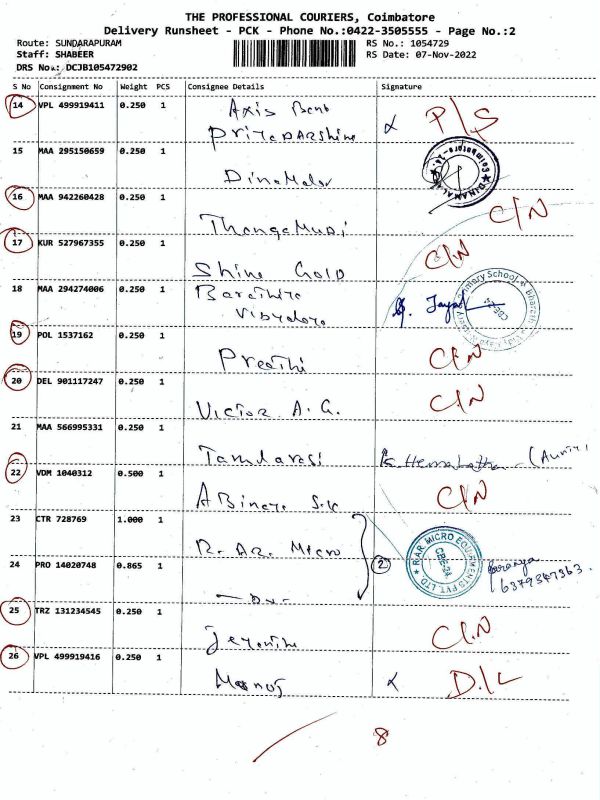 THE PROFESSIONAL COURIERS, Coimbatore
Delivery Runsheet - PCK - Phone No.:0422-3505555 - Page No.:2
Route: SUNDARAPURAM RS No.: 1054729
Staff: SHABEER RS Date: 07-Nov-2022
DRS No.: DCJB105472902
S No Consignment No Weight PCS Consignee Details Signature
14 VPL 499919411 0.250 1 Axis Bank P/S
PriyaDARShini
15 MAA 295150659 0.250 1
DinaMalar
16 MAA 942260428 0.250 1 C/N
ThangaMuai
17 KUR 527967355 0.250 1 C/N
Shine Gold
18 MAA 294274006 0.250 1 Barathiya
Vidyalaya
19 POL 1537162 0.250 1 C/N
Preethi
20 DEL 901117247 0.250 1 C/N
Victor A. G.
21 MAA 566995331 0.250 1
Tamilarasi
22 VDM 1040312 0.500 1 C/N
ABinaya S.K
23 CTR 728769 1.000 1
R. AR. Micro
24 PRO 14020748 0.865 1 2 R.AR MICRO EQUIPMENTS PVT LTD CBE-24 Saranya
-Do- 6379347363.
25 TRZ 131234545 0.250 1 C/N
26 VPL 499919416 0.250 1
Manoj D.L
8